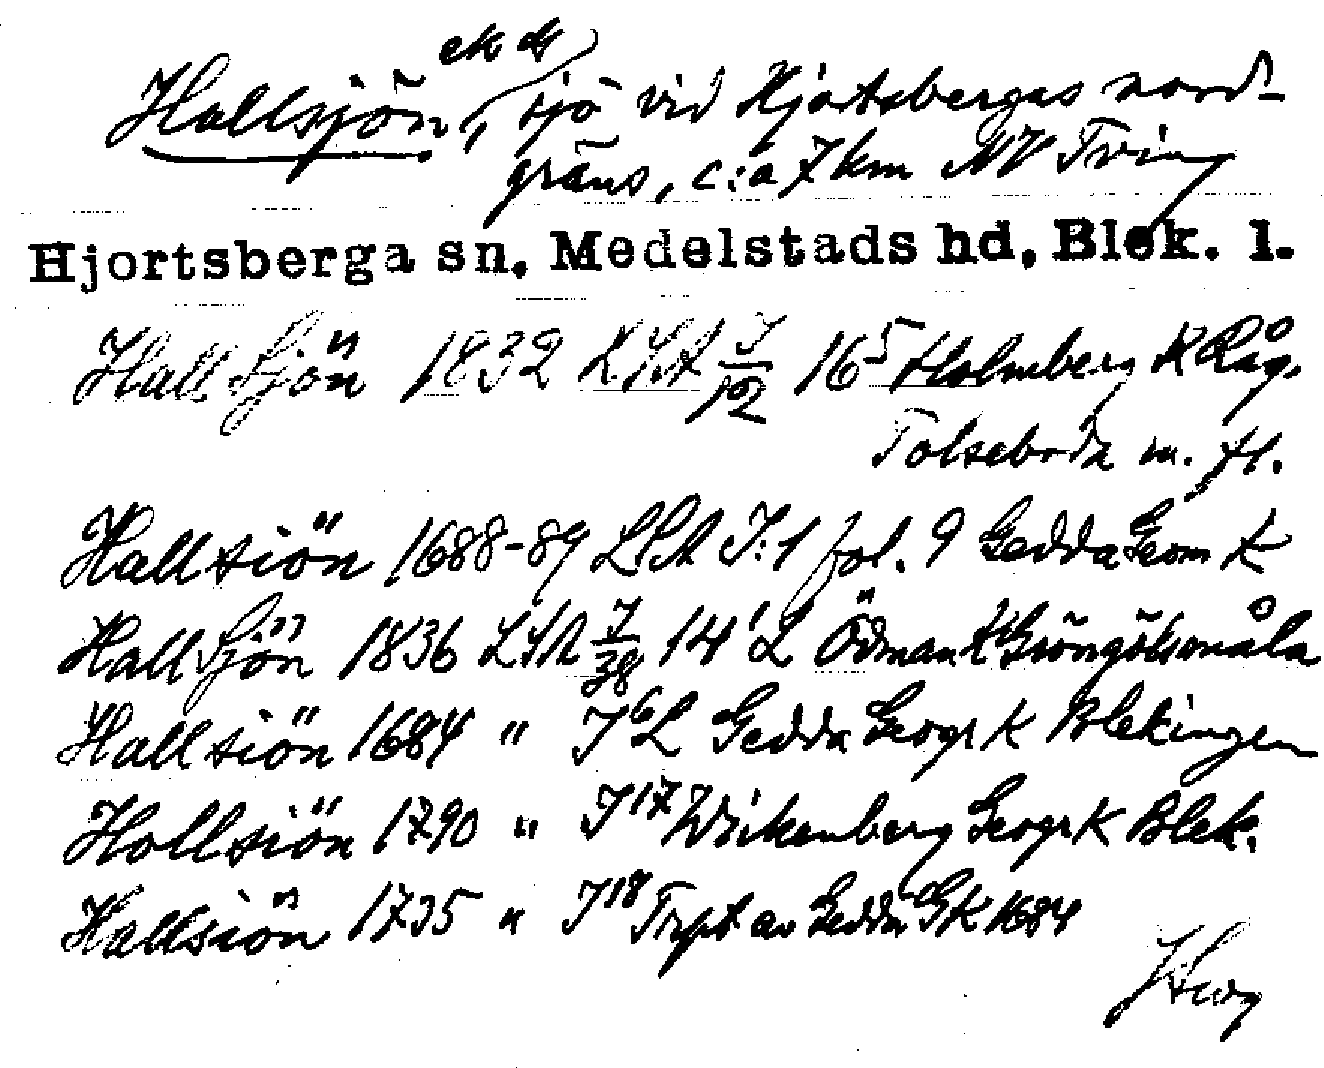 ek dr
Hallsjön, sjö vid Hjortsbergas nord-
gräns, c:a 7 km NV Tving
Hjortsberga sn, Medelstads hd, Blek. l.
Hall Sjön 1832 LSA I/12 16⁵ Holmberg K Råg.
Tolseboda m. fl.
Hallsiön 1688-89 LSA I:1 fol. 9 Gedda Geom K
Hall Sjön 1836 LSA 7/38 14' L Ödman K
Hallsiön 1684 " I⁶ L Gedda Geogr K Blekingen
Hollsiön 1790 " I¹⁷ Wirkenberg Geogr K Blek.
Hallsiön 1735 " I¹⁸ av Gedda GK 1684